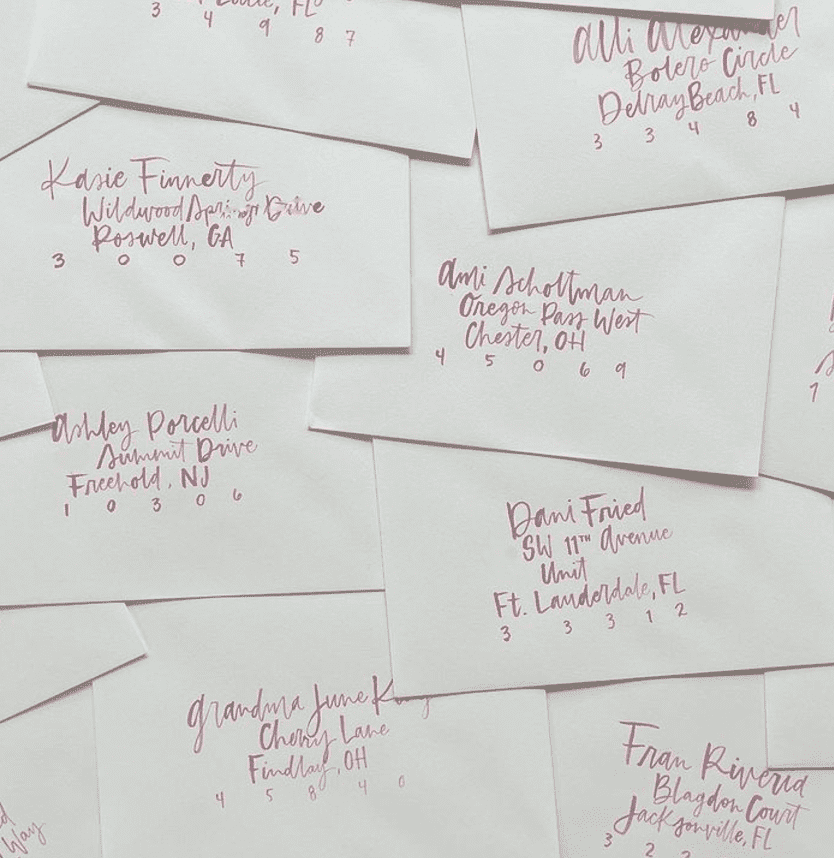 FL
3 4 9 8 7
Alli Alexander
Bolero Circle
Delray Beach, FL
3 3 4 8 4
Kasie Finnerty
Wildwood Springs Drive
Roswell, GA
3 0 0 7 5
Ami Scholtman
Oregon Pass West
Chester, OH
4 5 0 6 9
Ashley Porcelli
Summit Drive
Freehold, NJ
1 0 3 0 6
Dani Fried
SW 11TH Avenue
Unit
Ft. Lauderdale, FL
3 3 3 1 2
Grandma June
Cherry Lane
Findlay, OH
4 5 8 4 0
Fran Riverid
Blagdon Court
Jacksonville, FL
3 2 2
Way